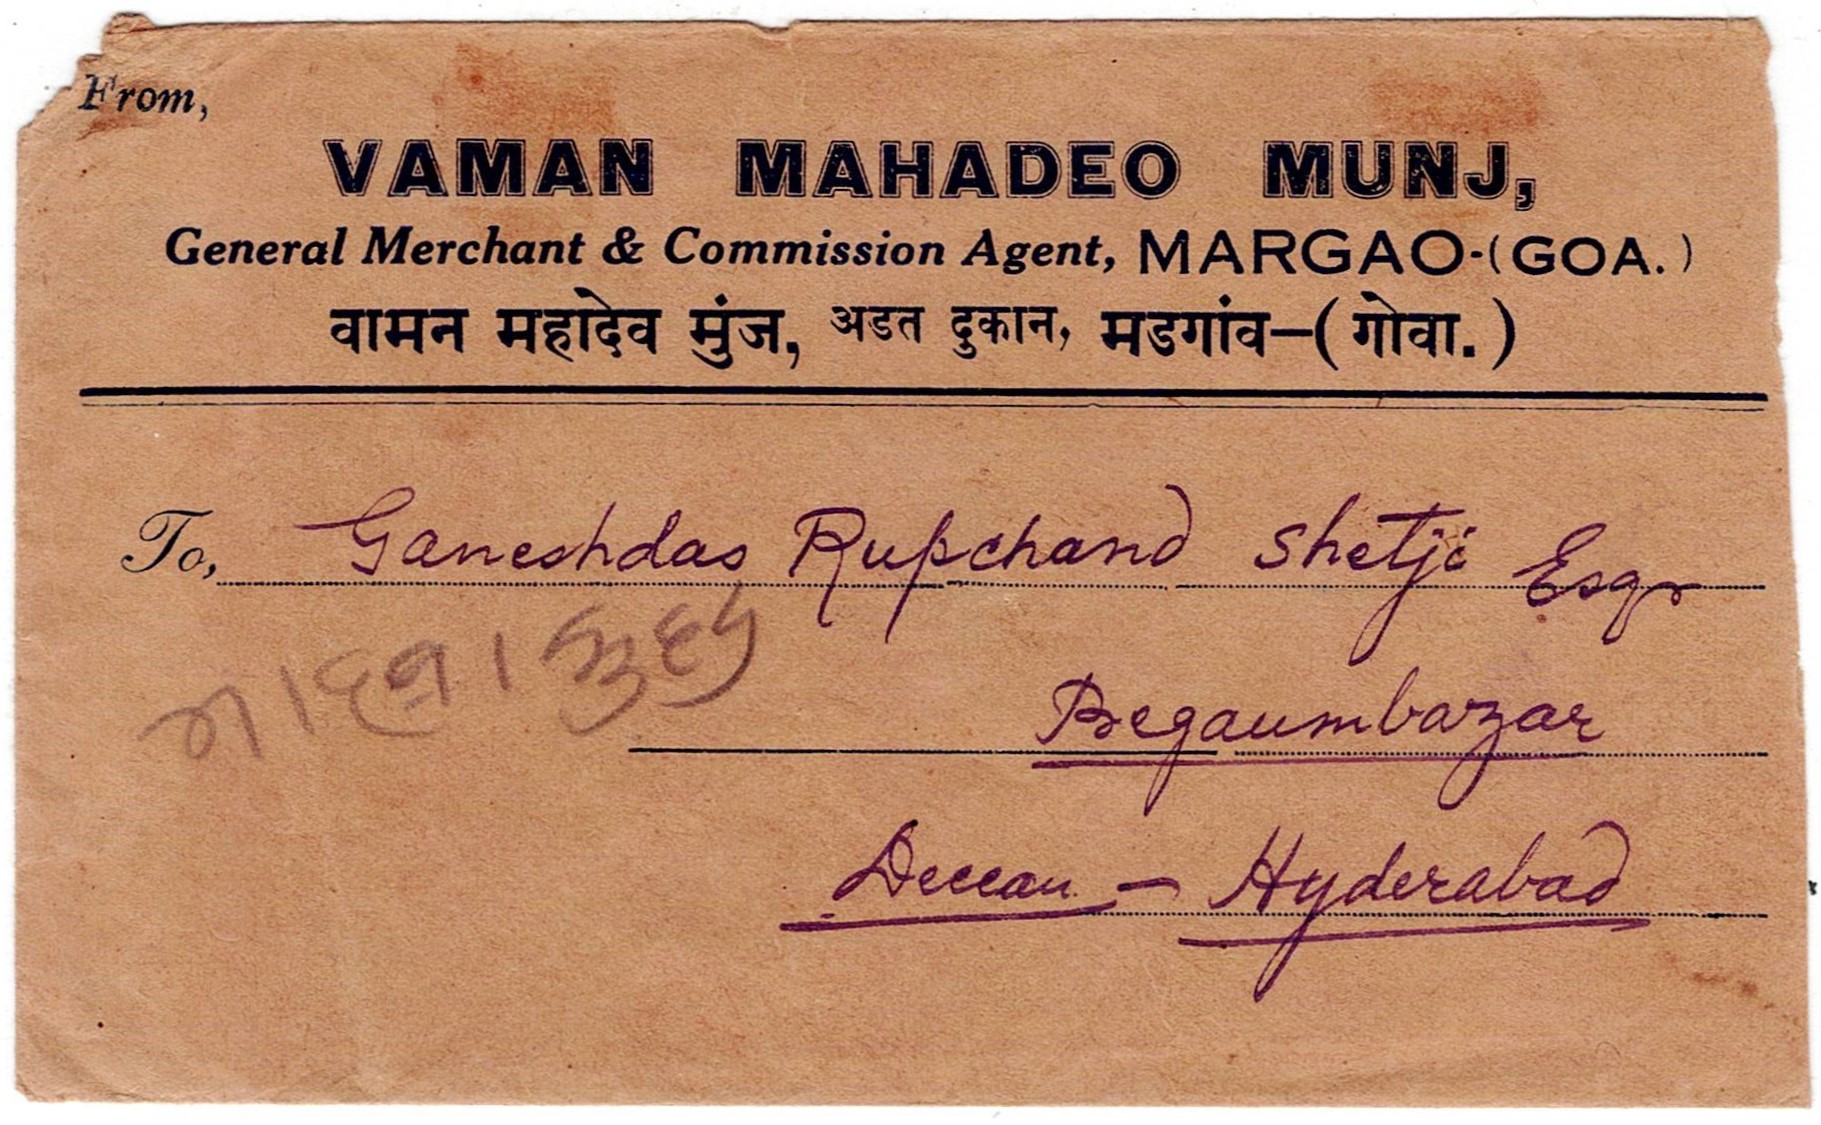 From,
VAMAN MAHADEO MUNJ,
General Merchant & Commission Agent, MARGAO-(GOA.)
वामन महादेव मुंज, अडत दुकान, मडगांव–(गोवा.)
To, Ganeshdas Rupchand Shetji Esqr
Begaumbazar
Deccan - Hyderabad